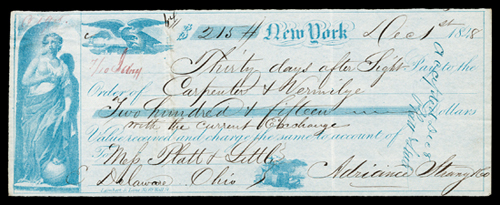 $ 215 New York Dec 1st 1858
Thirty days after Sight Pay to the
Order of Carpenter & Vermilye
Two hundred & fifteen Dollars
with the current Exchange
Value received and charge the same to account of
To Mess Platt & Little
Delaware Ohio Adriance Strang & Co